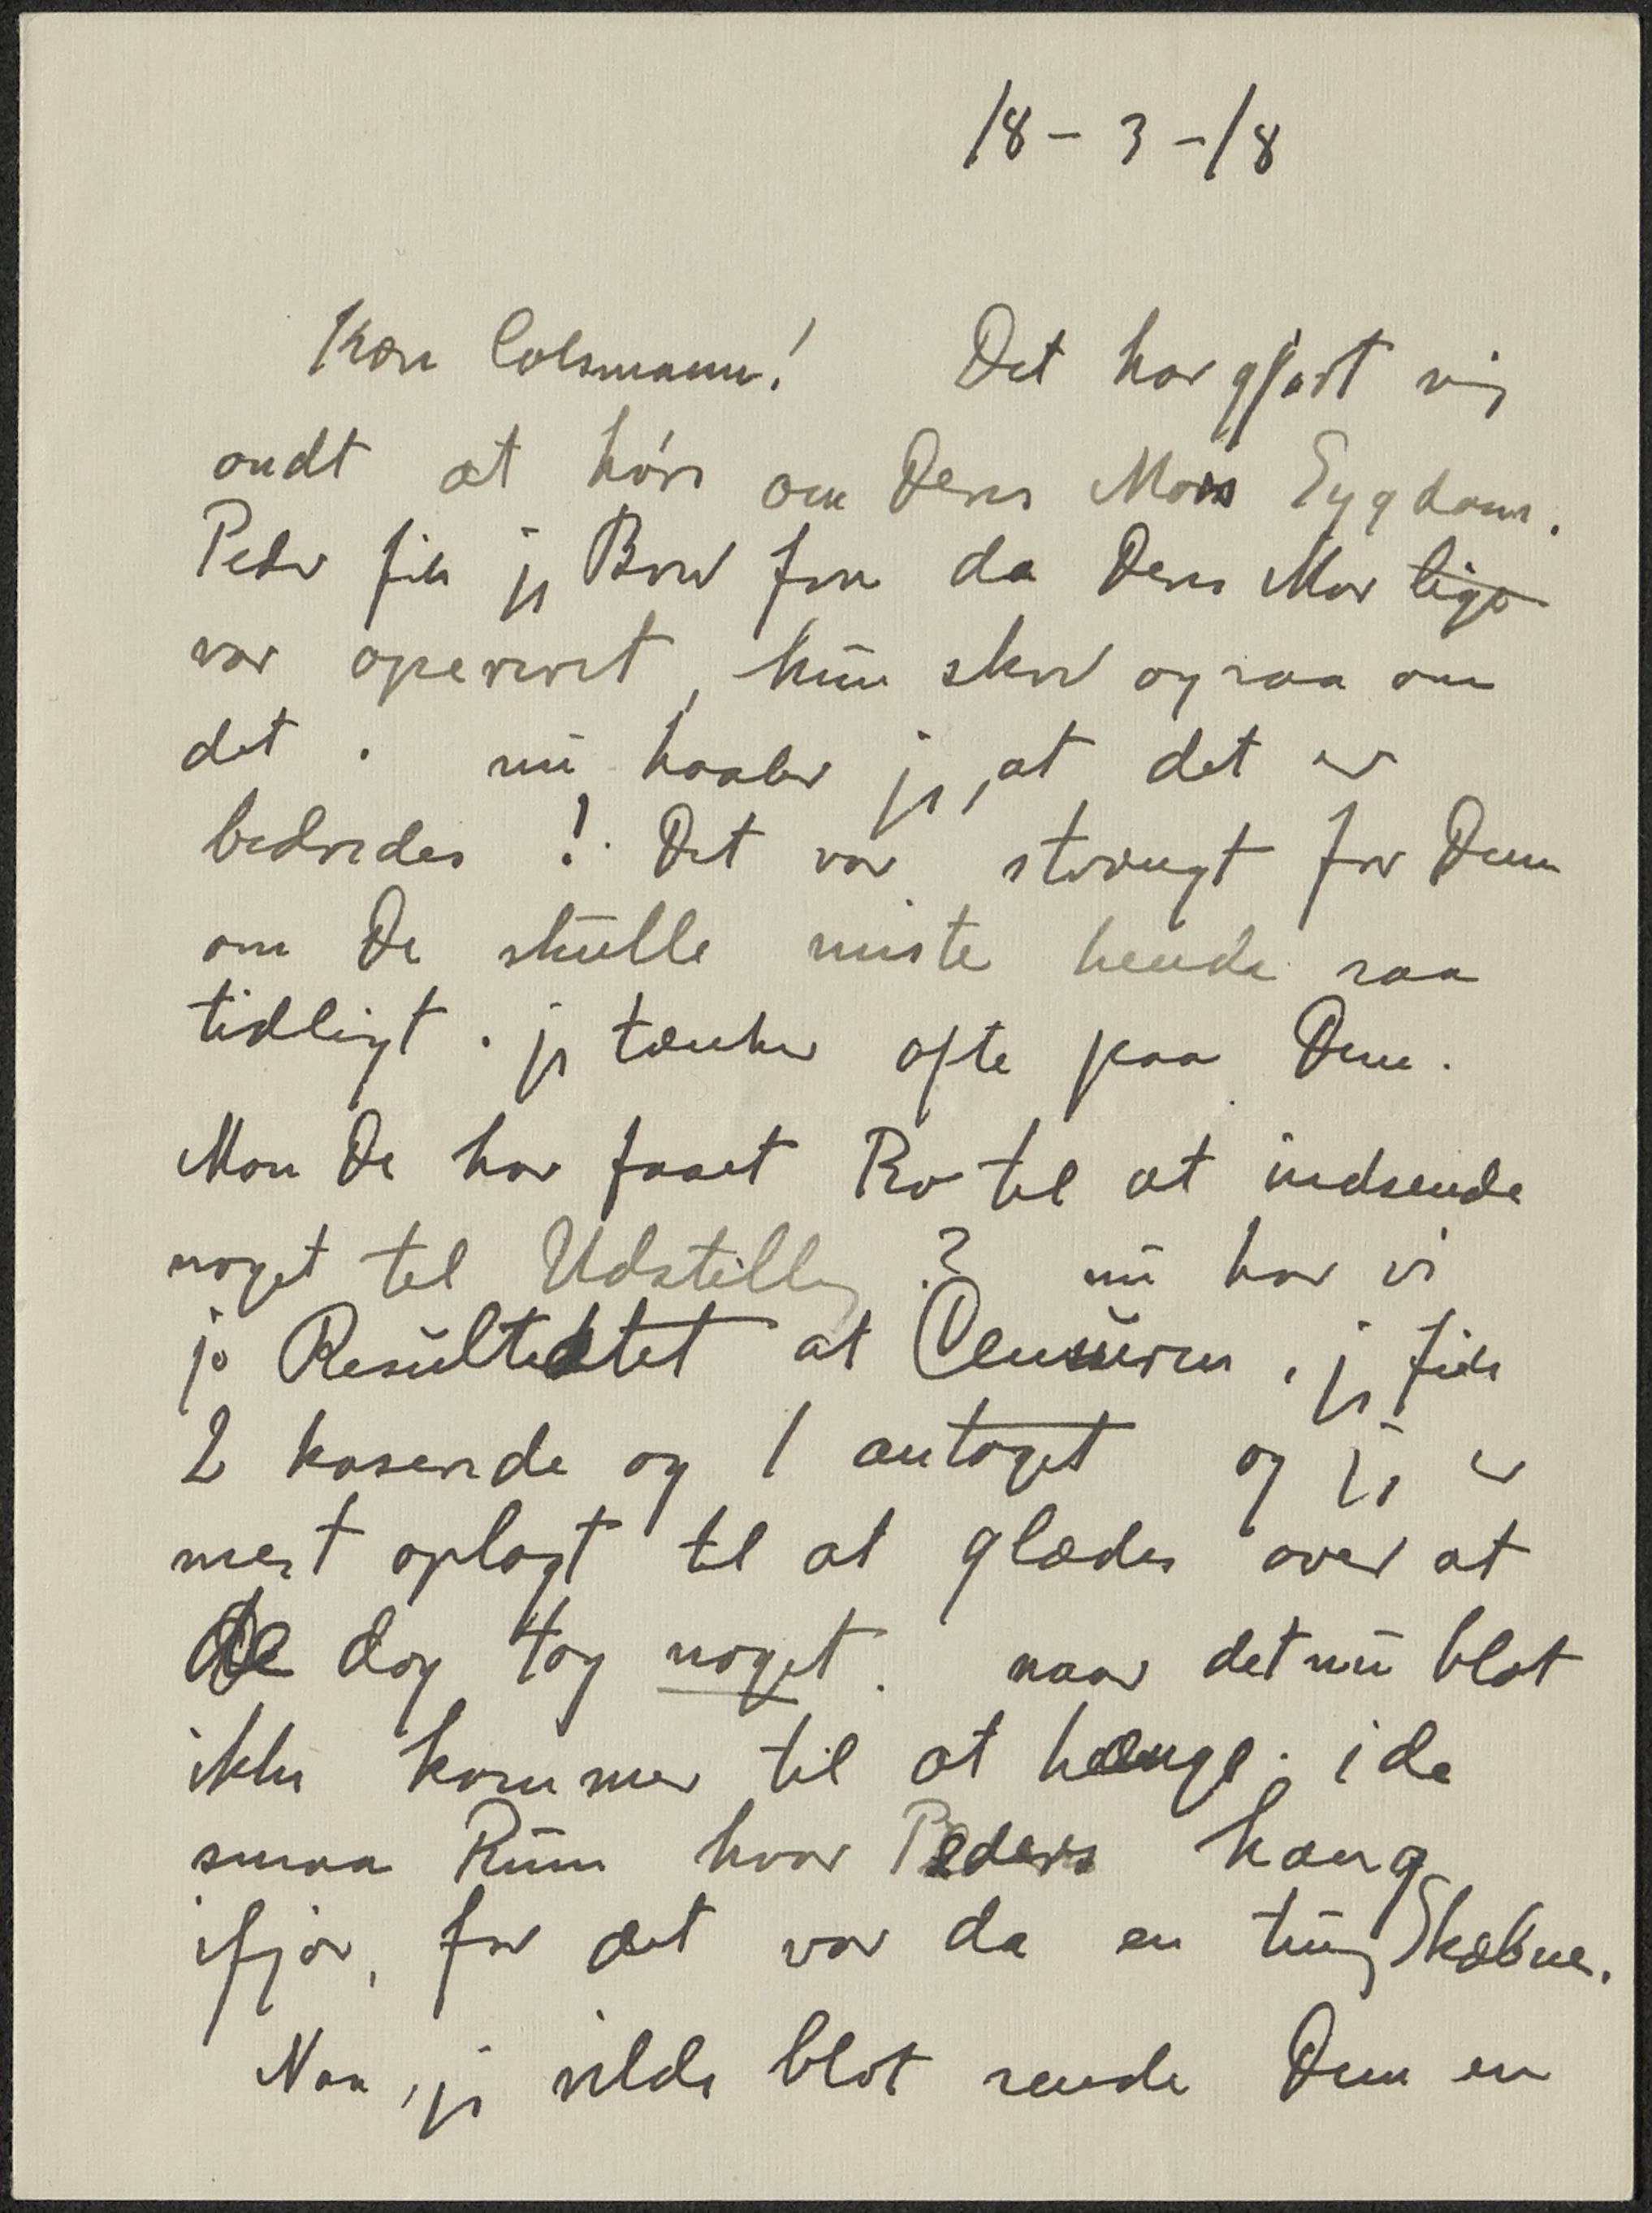 18-3-18
Kære Colsmann! Det har gjort mig
ondt at høre om Deres Mors Sygdom.
Peder fik jeg Brev fra da Deres Mor lige
var opereret, hun skrev ogsaa om
det. nu haaber jeg, at det er
bedredes! Det var strengt for Dem
om De skulle miste hende saa
tidligt. jeg tænker ofte paa Dem.
Mon De har faaet Ro til at indsende
noget til Udstilling? nu har vi
jo Resultatet at Censuren, jeg fik
2 kaserede og 1 antaget og jeg er
mest oplagt til at glædes over at
de dog tog noget. naar det nu blot
ikke kommer til at hænge i de
smaa Rum hvor Peders hang
ifjor, for det var da en tung Skæbne.
Naa, jeg vilde blot sende Dem en